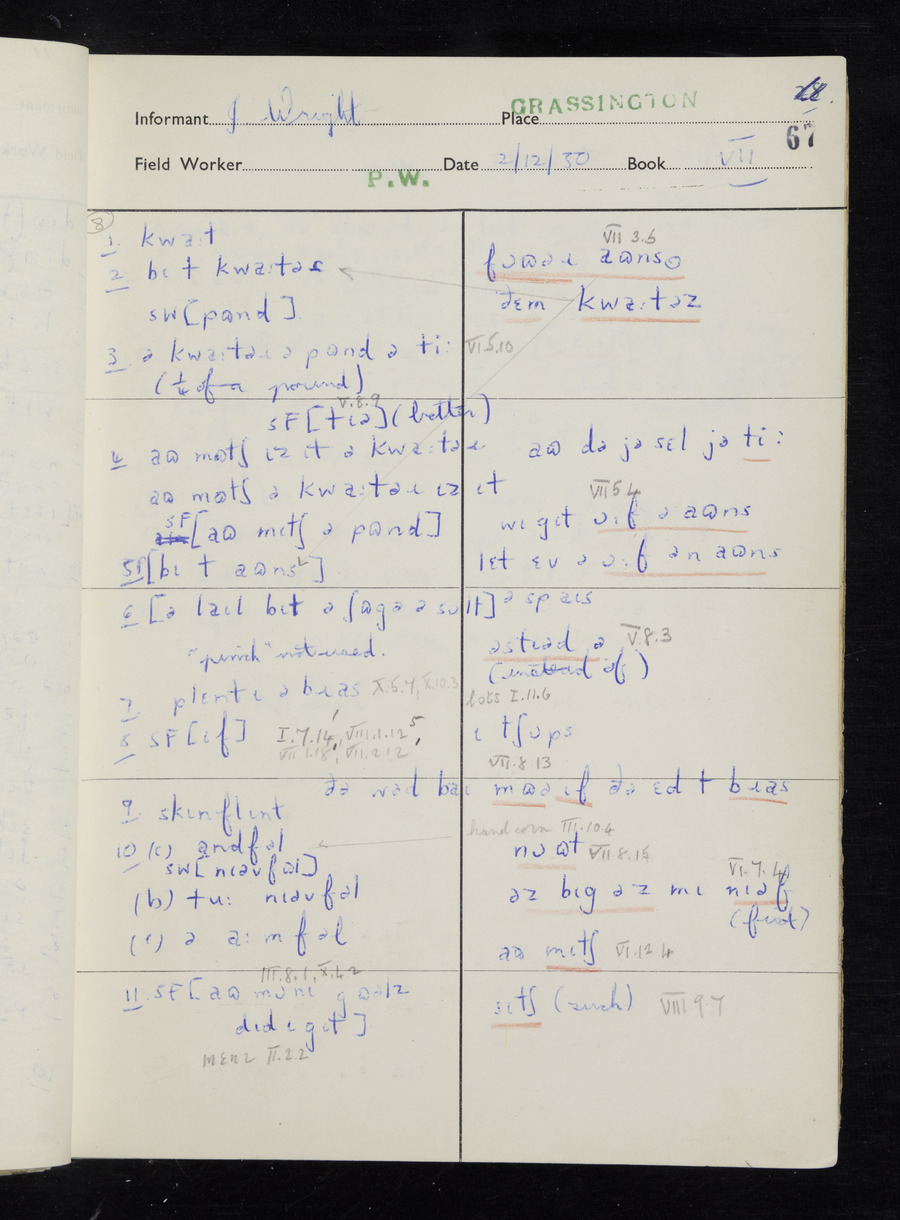 GRASSINGTON
Informant J Wright Place
67
Field Worker P.W. Date 2/12/30 Book VII
8
1. kwaːt
2. bɪ t kwaːtəz
sw[pʊnd]
3. ə kwaːtəɹ ə pʊnd ə tiː VI.5.10
(¼ of a pound)
V.8.9
SF[tɪə] (better)
4 aʊ mʊtʃ ɪz ɪt ə kwaːtəɹ
aʊ mʊtʃ ə kwaːtəɹ ɪz ɪt
SF [aʊ mɪtʃ ə pʊnd]
5 SF[bɪ t aʊns]
6 [ə laɪl bɪt ə ʃʊgə ə sɒlt]
"pinch" not used.
7. plɛntɪ ə bɪəs X.5.7, X.10.3
8 SF[ɪf] I.7.14, VIII.1.12
VII.1.18, VII.2.12
9. skɪnflɪnt
10 (c) andfəl
sw[nɪəvfəl]
(b) tuː nɪəvfəl
(c) ə aːmfəl
III.8.1, X.4.2
11. SF[aʊ mʊnɪ gʊəlz
dɪd ɪ gɪt]
mɛnz II.2.2
VII 3.6
ðɛm kwaːtəz
aʊ də jə sɛl jə tiː
VII 5.4
wɪ gɪt ɔːf ə aʊns
lɛt ɛv ə ɔːf ən aʊns
ə spaɪs
əstɪəd ə V.8.3
(instead of)
lots I.11.6
ɪ tʃɒps
VII.8.13
ðə wəd baɪ mʊəɹ ɪf ðə ɛd t bɪəs
hand corn III.10.4
nɔʊt VII.8.15
VI.7.4
əz bɪg əz mɪ nɪəf
(fist)
aʊ mɪtʃ VI.12.4
sɪtʃ (such) VIII 9.7